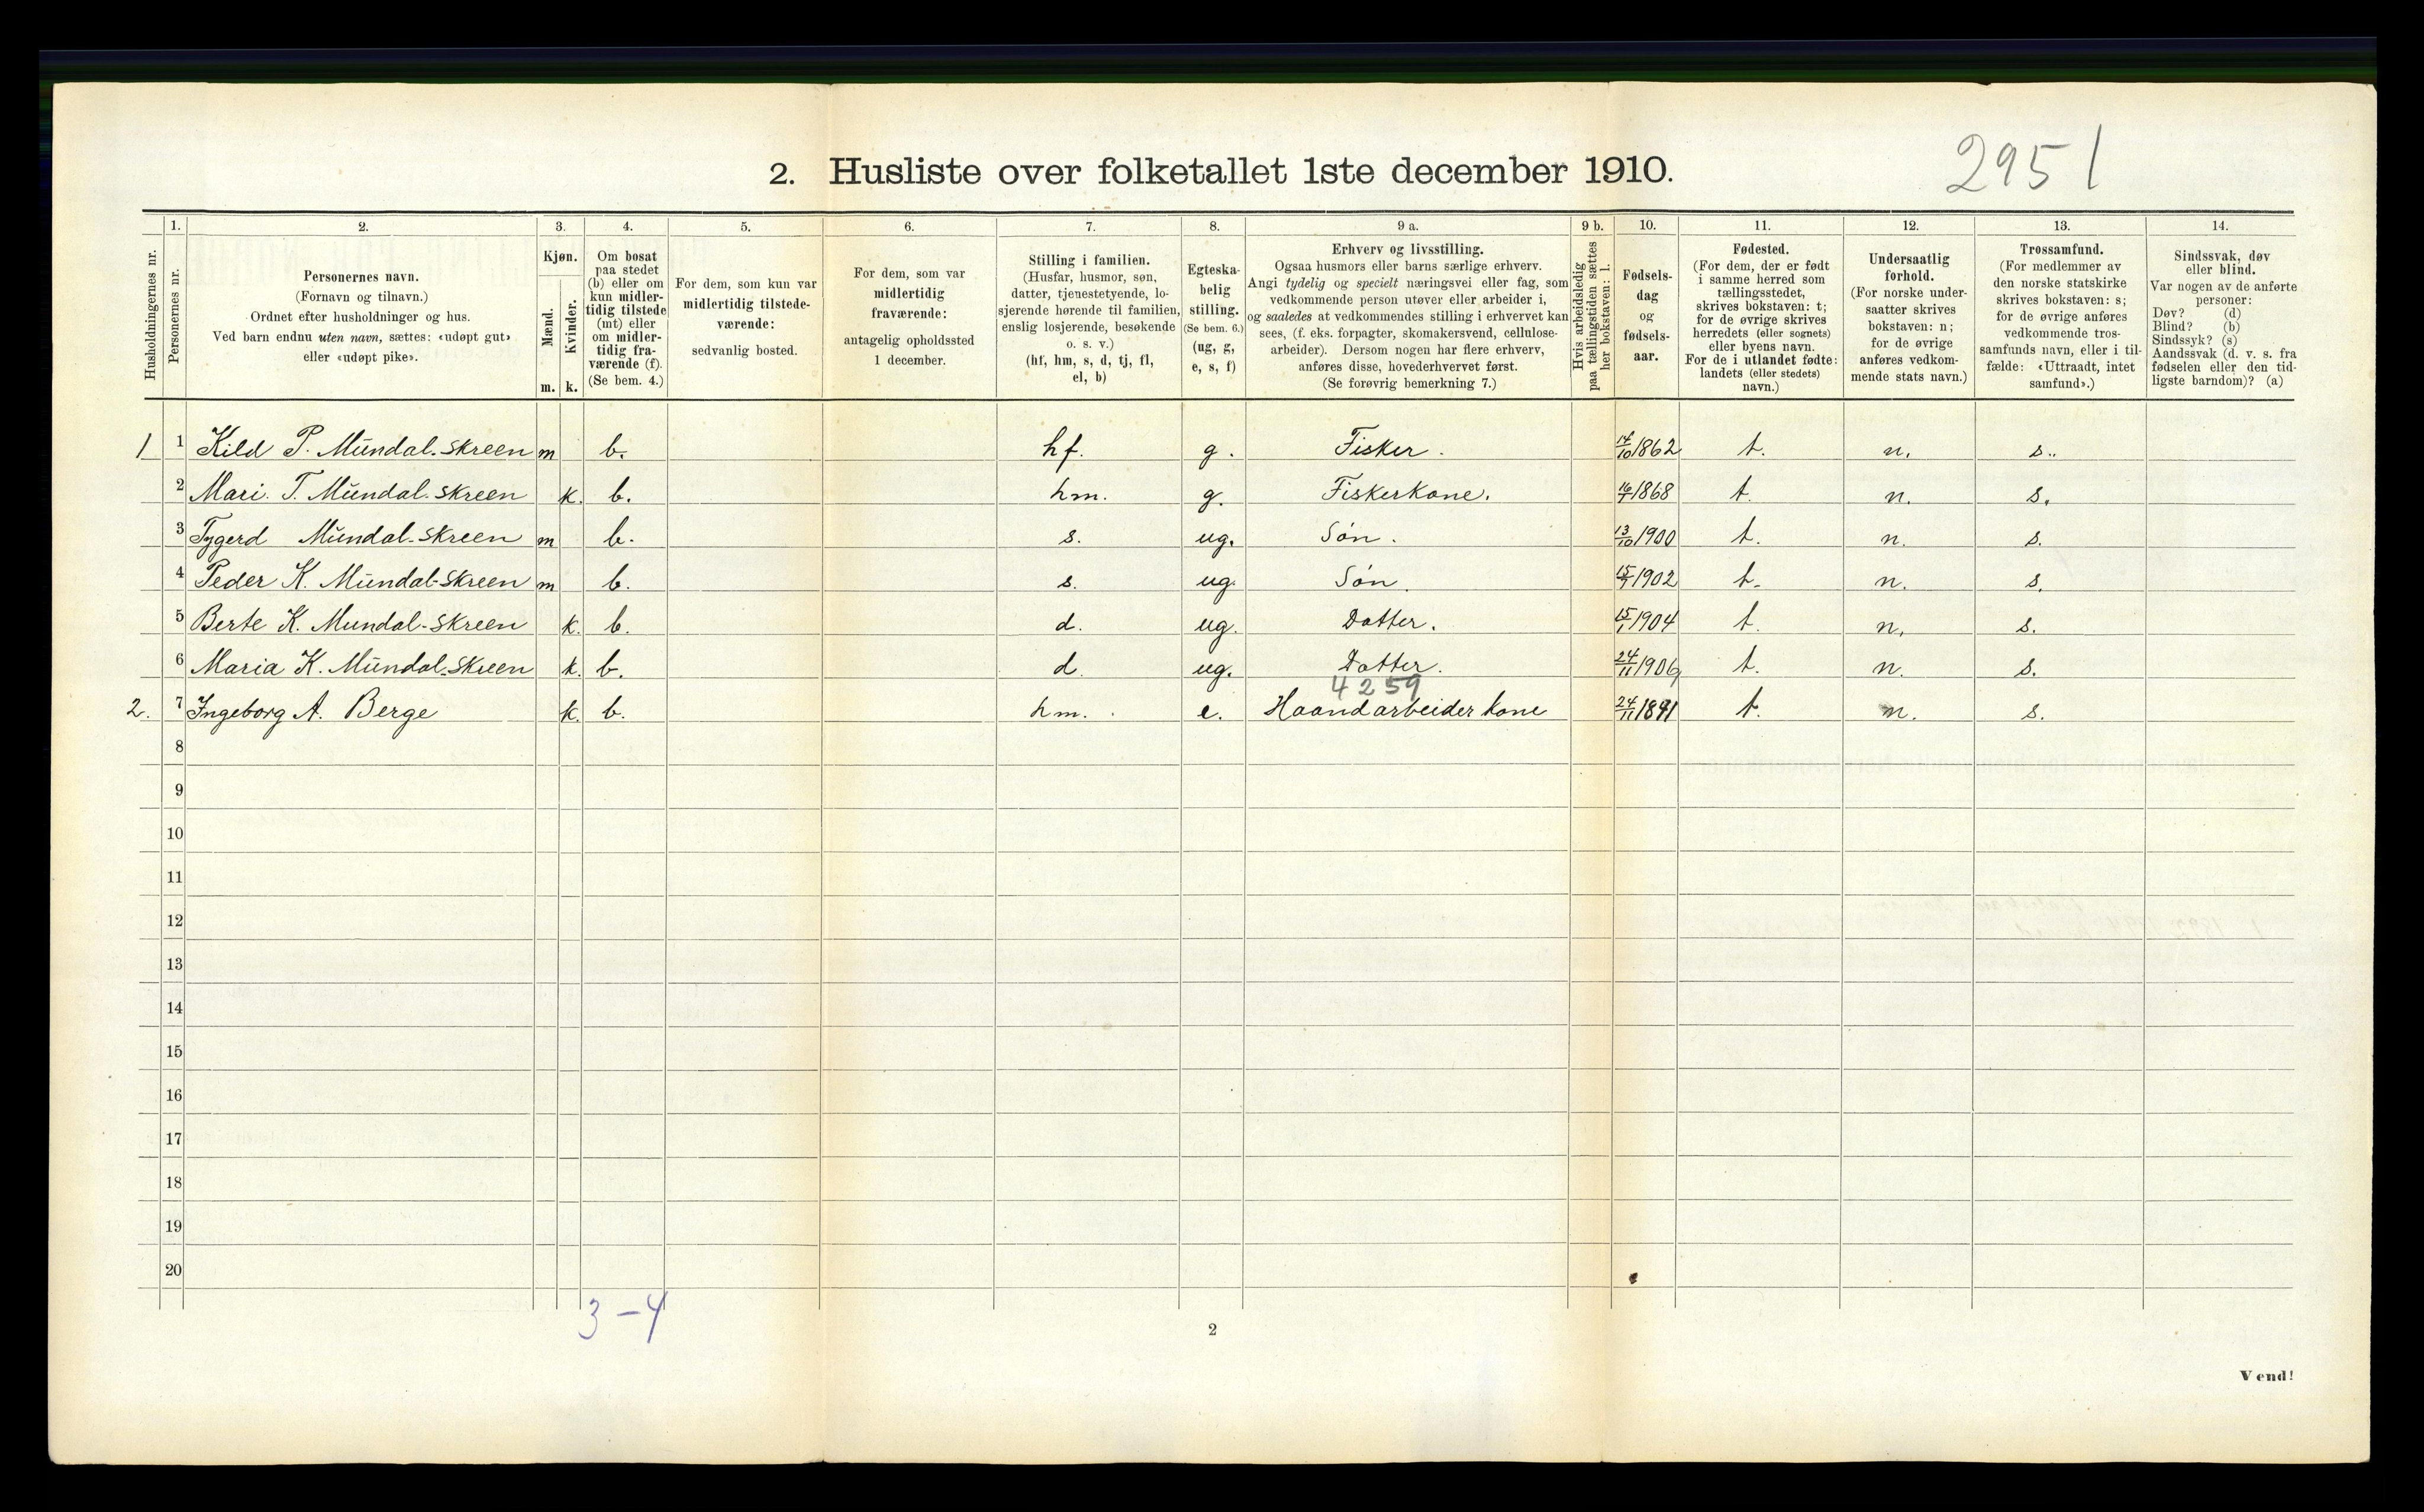 2951
2. Husliste over folketallet 1ste december 1910.
Husholdningernes nr.
1. Personernes nr.
2. Personernes navn. (Fornavn og tilnavn.) Ordnet efter husholdninger og hus. Ved barn endnu uten navn, sættes: «udøpt gut» eller «udøpt pike».
3. Kjøn. Mænd. m. Kvinder. k.
4. Om bosat paa stedet (b) eller om kun midlertidig tilstede (mt) eller om midlertidig fraværende (f). (Se bem. 4.)
5. For dem, som kun var midlertidig tilstedeværende: sedvanlig bosted.
6. For dem, som var midlertidig fraværende: antagelig opholdssted 1 december.
7. Stilling i familien. (Husfar, husmor, søn, datter, tjenestetyende, losjerende hørende til familien, enslig losjerende, besøkende o. s. v.) (hf, hm, s, d, tj, fl, el, b)
8. Egteskabelig stilling. (Se bem. 6.) (ug, g, e, s, f)
9 a. Erhverv og livsstilling. Ogsaa husmors eller barns særlige erhverv. Angi tydelig og specielt næringsvei eller fag, som vedkommende person utøver eller arbeider i, og saaledes at vedkommendes stilling i erhvervet kan sees, (f. eks. forpagter, skomakersvend, cellulosearbeider). Dersom nogen har flere erhverv, anføres disse, hovederhvervet først. (Se forøvrig bemerkning 7.)
9 b. Hvis arbeidsledig paa tællingstiden sættes her bokstaven: l.
10. Fødselsdag og fødselsaar.
11. Fødested. (For dem, der er født i samme herred som tællingsstedet, skrives bokstaven: t; for de øvrige skrives herredets (eller sognets) eller byens navn. For de i utlandet fødte: landets (eller stedets) navn.)
12. Undersaatlig forhold. (For norske undersaatter skrives bokstaven: n; for de øvrige anføres vedkommende stats navn.)
13. Trossamfund. (For medlemmer av den norske statskirke skrives bokstaven: s; for de øvrige anføres vedkommende trossamfunds navn, eller i tilfælde: «Uttraadt, intet samfund».)
14. Sindssvak, døv eller blind. Var nogen av de anførte personer: Døv? (d) Blind? (b) Sindssyk? (s) Aandssvak (d. v. s. fra fødselen eller den tidligste barndom)? (a)
1 1 Kild P. Mundal-Skreen m b. hf. g. Fisker. 14/10 1862 t. n. s.
2 Mari T. Mundal-Skreen k. b. hm. g. Fiskerkone. 16/7 1868 t. n. s.
3 Tygerd Mundal-Skreen m b. s. ug. Søn. 13/10 1900 t. n. s.
4 Peder K. Mundal-Skreen m b. s. ug. Søn. 15/7 1902 t. n. s.
5 Berte K. Mundal-Skreen k. b. d. ug. Datter. 15/1 1904 t. n. s.
6 Maria K. Mundal-Skreen k. b. d. ug. Datter. 24/11 1906 t. n. s.
4259
2. 7 Ingeborg A. Berge k. b. hm. e. Haandarbeiderkone 24/11 t. n. s.
8
9
10
11
12
13
14
15
16
17
18
19
20
3-4
2
Vend!